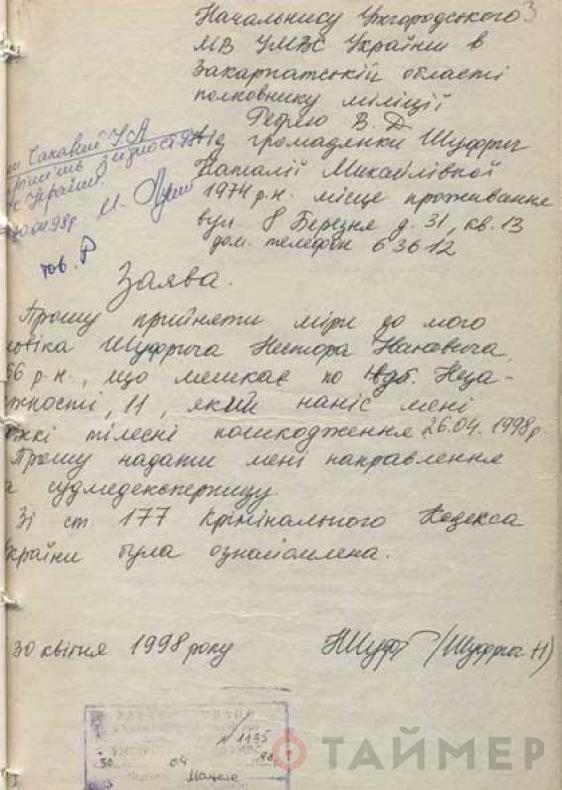 3
Начальнику Ужгородського
МВ УМВС України в
Закарпатській області
полковнику міліції
Гебрею В. Д
Від громадянки Шуфрич
Наталії Михайлівної
1974 р.н. місце проживання
вул. 8 Березня д. 31, кв. 13
дом. телефон 63612
Чакавий
згідно
України
04 98р
тов.
Заява.
Прошу прийняти міри до мого
ловіка Шуфрича Нестора Івановича,
66 р.н., що мешкає по наб. Неза-
жності, 11, який наніс мені
яжкі тілесні пошкодження 26.04.1998 р.
Прошу надати мені направлення
а судмедекспертизу.
Зі ст. 177 Крімінального Кодекса
країни була ознайомлена.
30 квітня 1998 року
НШуф (Шуфрич Н)
N 1135
30 04 98
ТАЙМЕР